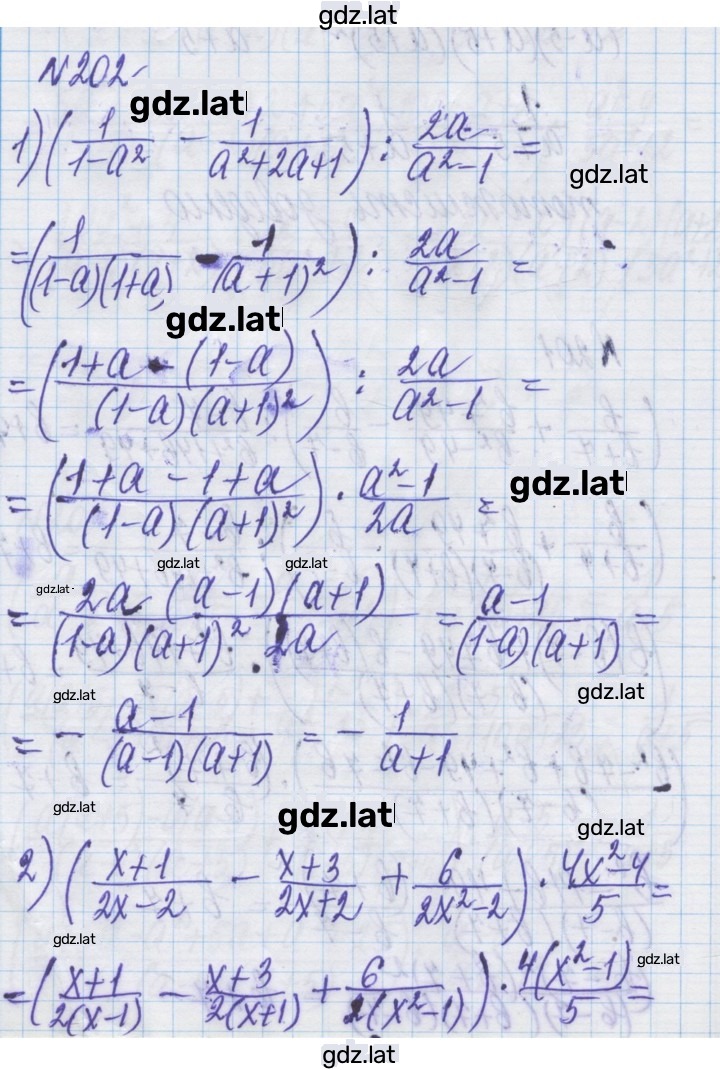 gdz.lat
№202
gdz.lat
1) (1/(1-a²) - 1/(a²+2a+1)) : 2a/(a²-1) =
gdz.lat
= (1/((1-a)(1+a)) - 1/(a+1)²) : 2a/(a²-1) =
gdz.lat
= ((1+a-(1-a))/((1-a)(a+1)²)) : 2a/(a²-1) =
= ((1+a-1+a)/((1-a)(a+1)²)) · (a²-1)/2a =
gdz.lat
gdz.lat gdz.lat
gdz.lat
= 2a(a-1)(a+1)/((1-a)(a+1)²·2a) = (a-1)/((1-a)(a+1)) =
gdz.lat gdz.lat
= - (a-1)/((a-1)(a+1)) = - 1/(a+1)
gdz.lat gdz.lat gdz.lat
2) ((x+1)/(2x-2) - (x+3)/(2x+2) + 6/(2x²-2)) · (4x²-4)/5 =
gdz.lat gdz.lat
= ((x+1)/(2(x-1)) - (x+3)/(2(x+1)) + 6/(2(x²-1))) · 4(x²-1)/5 =
gdz.lat